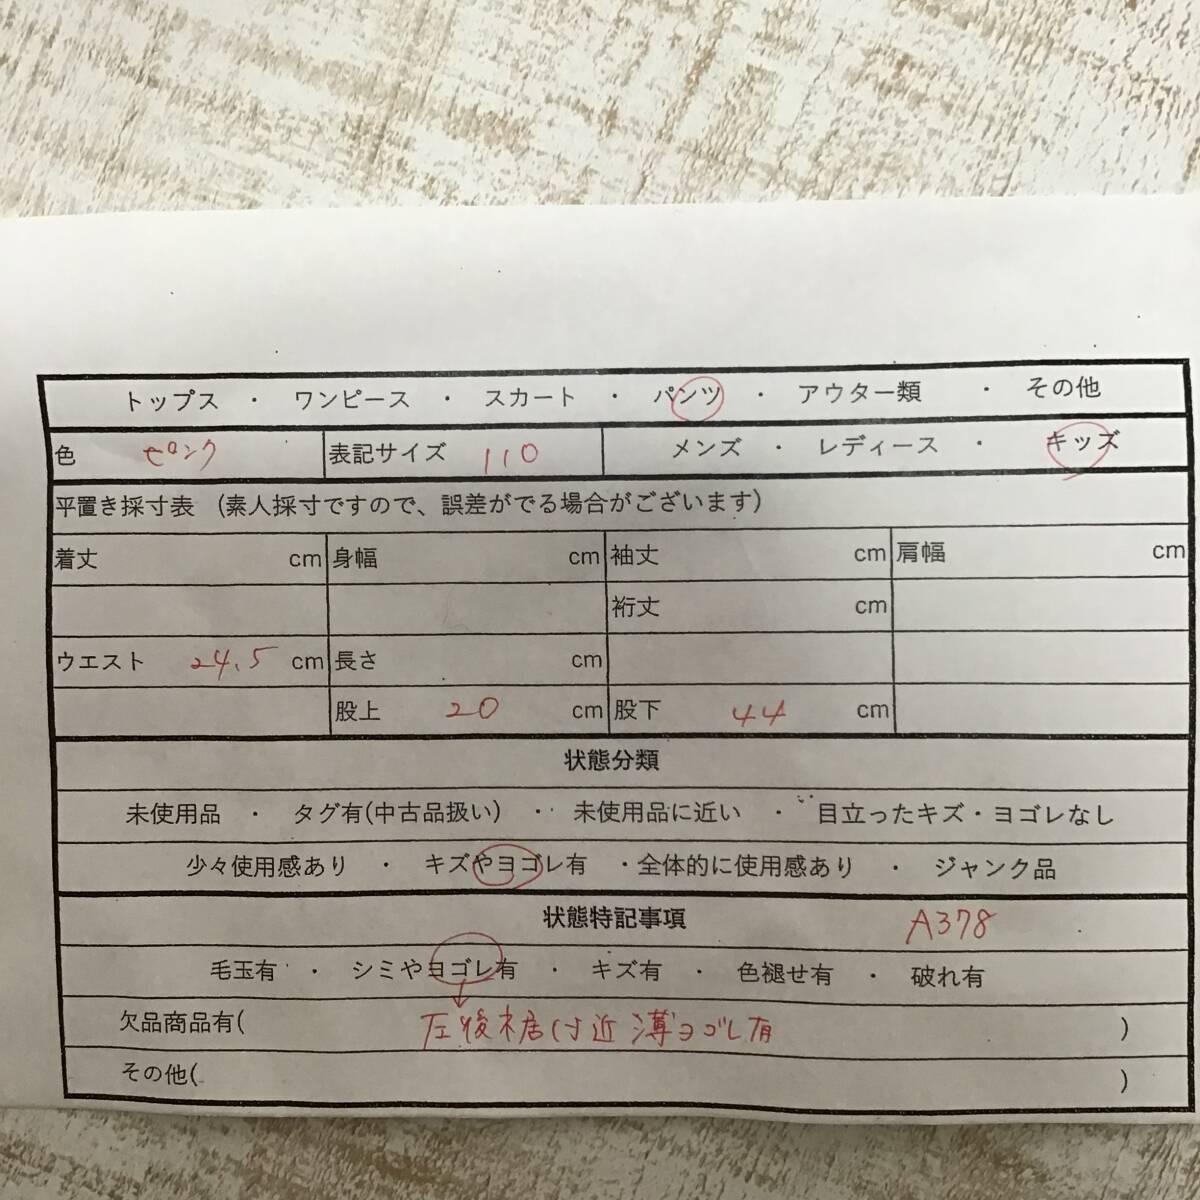 トップス ・ ワンピース ・ スカート ・ パンツ ・ アウター類 ・ その他
色 ピンク 表記サイズ 110 メンズ ・ レディース ・ キッズ
平置き採寸表 (素人採寸ですので、誤差がでる場合がございます)
着丈 cm 身幅 cm 袖丈 cm 肩幅 cm
裄丈 cm
ウエスト 24.5 cm 長さ cm
股上 20 cm 股下 44 cm
状態分類
未使用品 ・ タグ有(中古品扱い) ・ 未使用品に近い ・ 目立ったキズ・ヨゴレなし
少々使用感あり ・ キズやヨゴレ有 ・全体的に使用感あり ・ ジャンク品
状態特記事項 A378
毛玉有 ・ シミやヨゴレ有 ・ キズ有 ・ 色褪せ有 ・ 破れ有
欠品商品有( 左後 付近 ヨゴレ有 )
その他( )